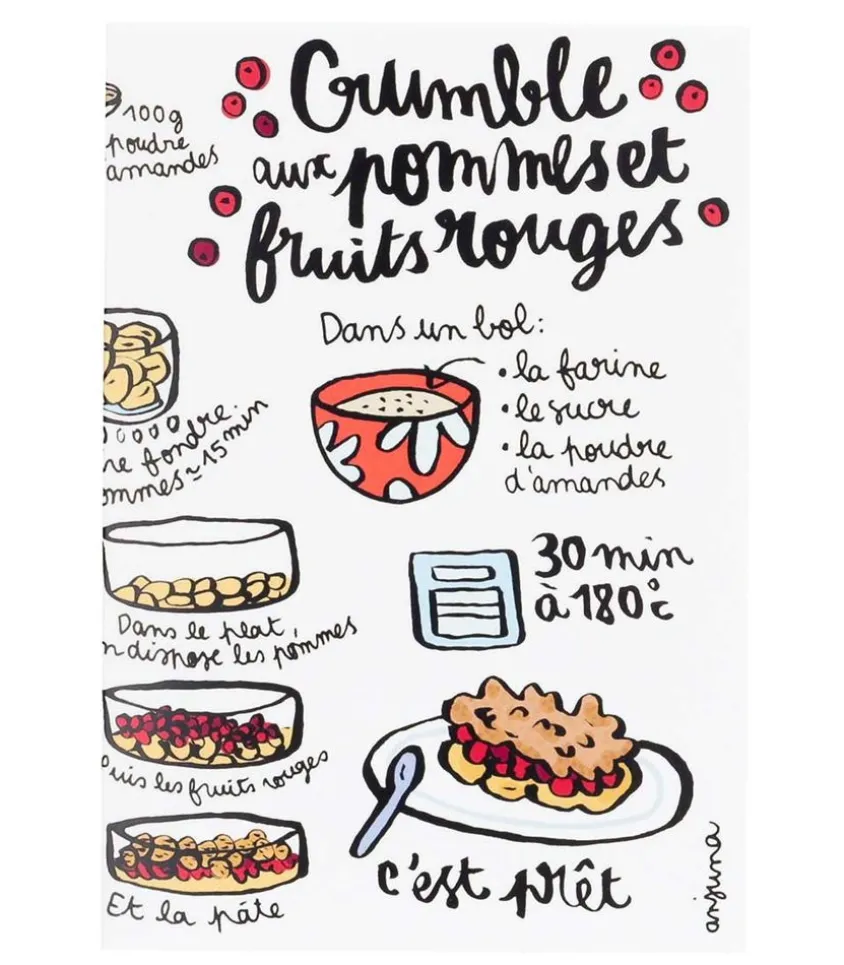 Crumble
aux pommes et
fruits rouges
100g
poudre
amandes
Dans un bol:
• la farine
• le sucre
• la poudre
d'amandes
fondre
≃ 15 min
30 min
à 180°c
Dans le plat,
dispose les pommes
les fruits rouges
Et la pâte
c'est prêt
anjuna